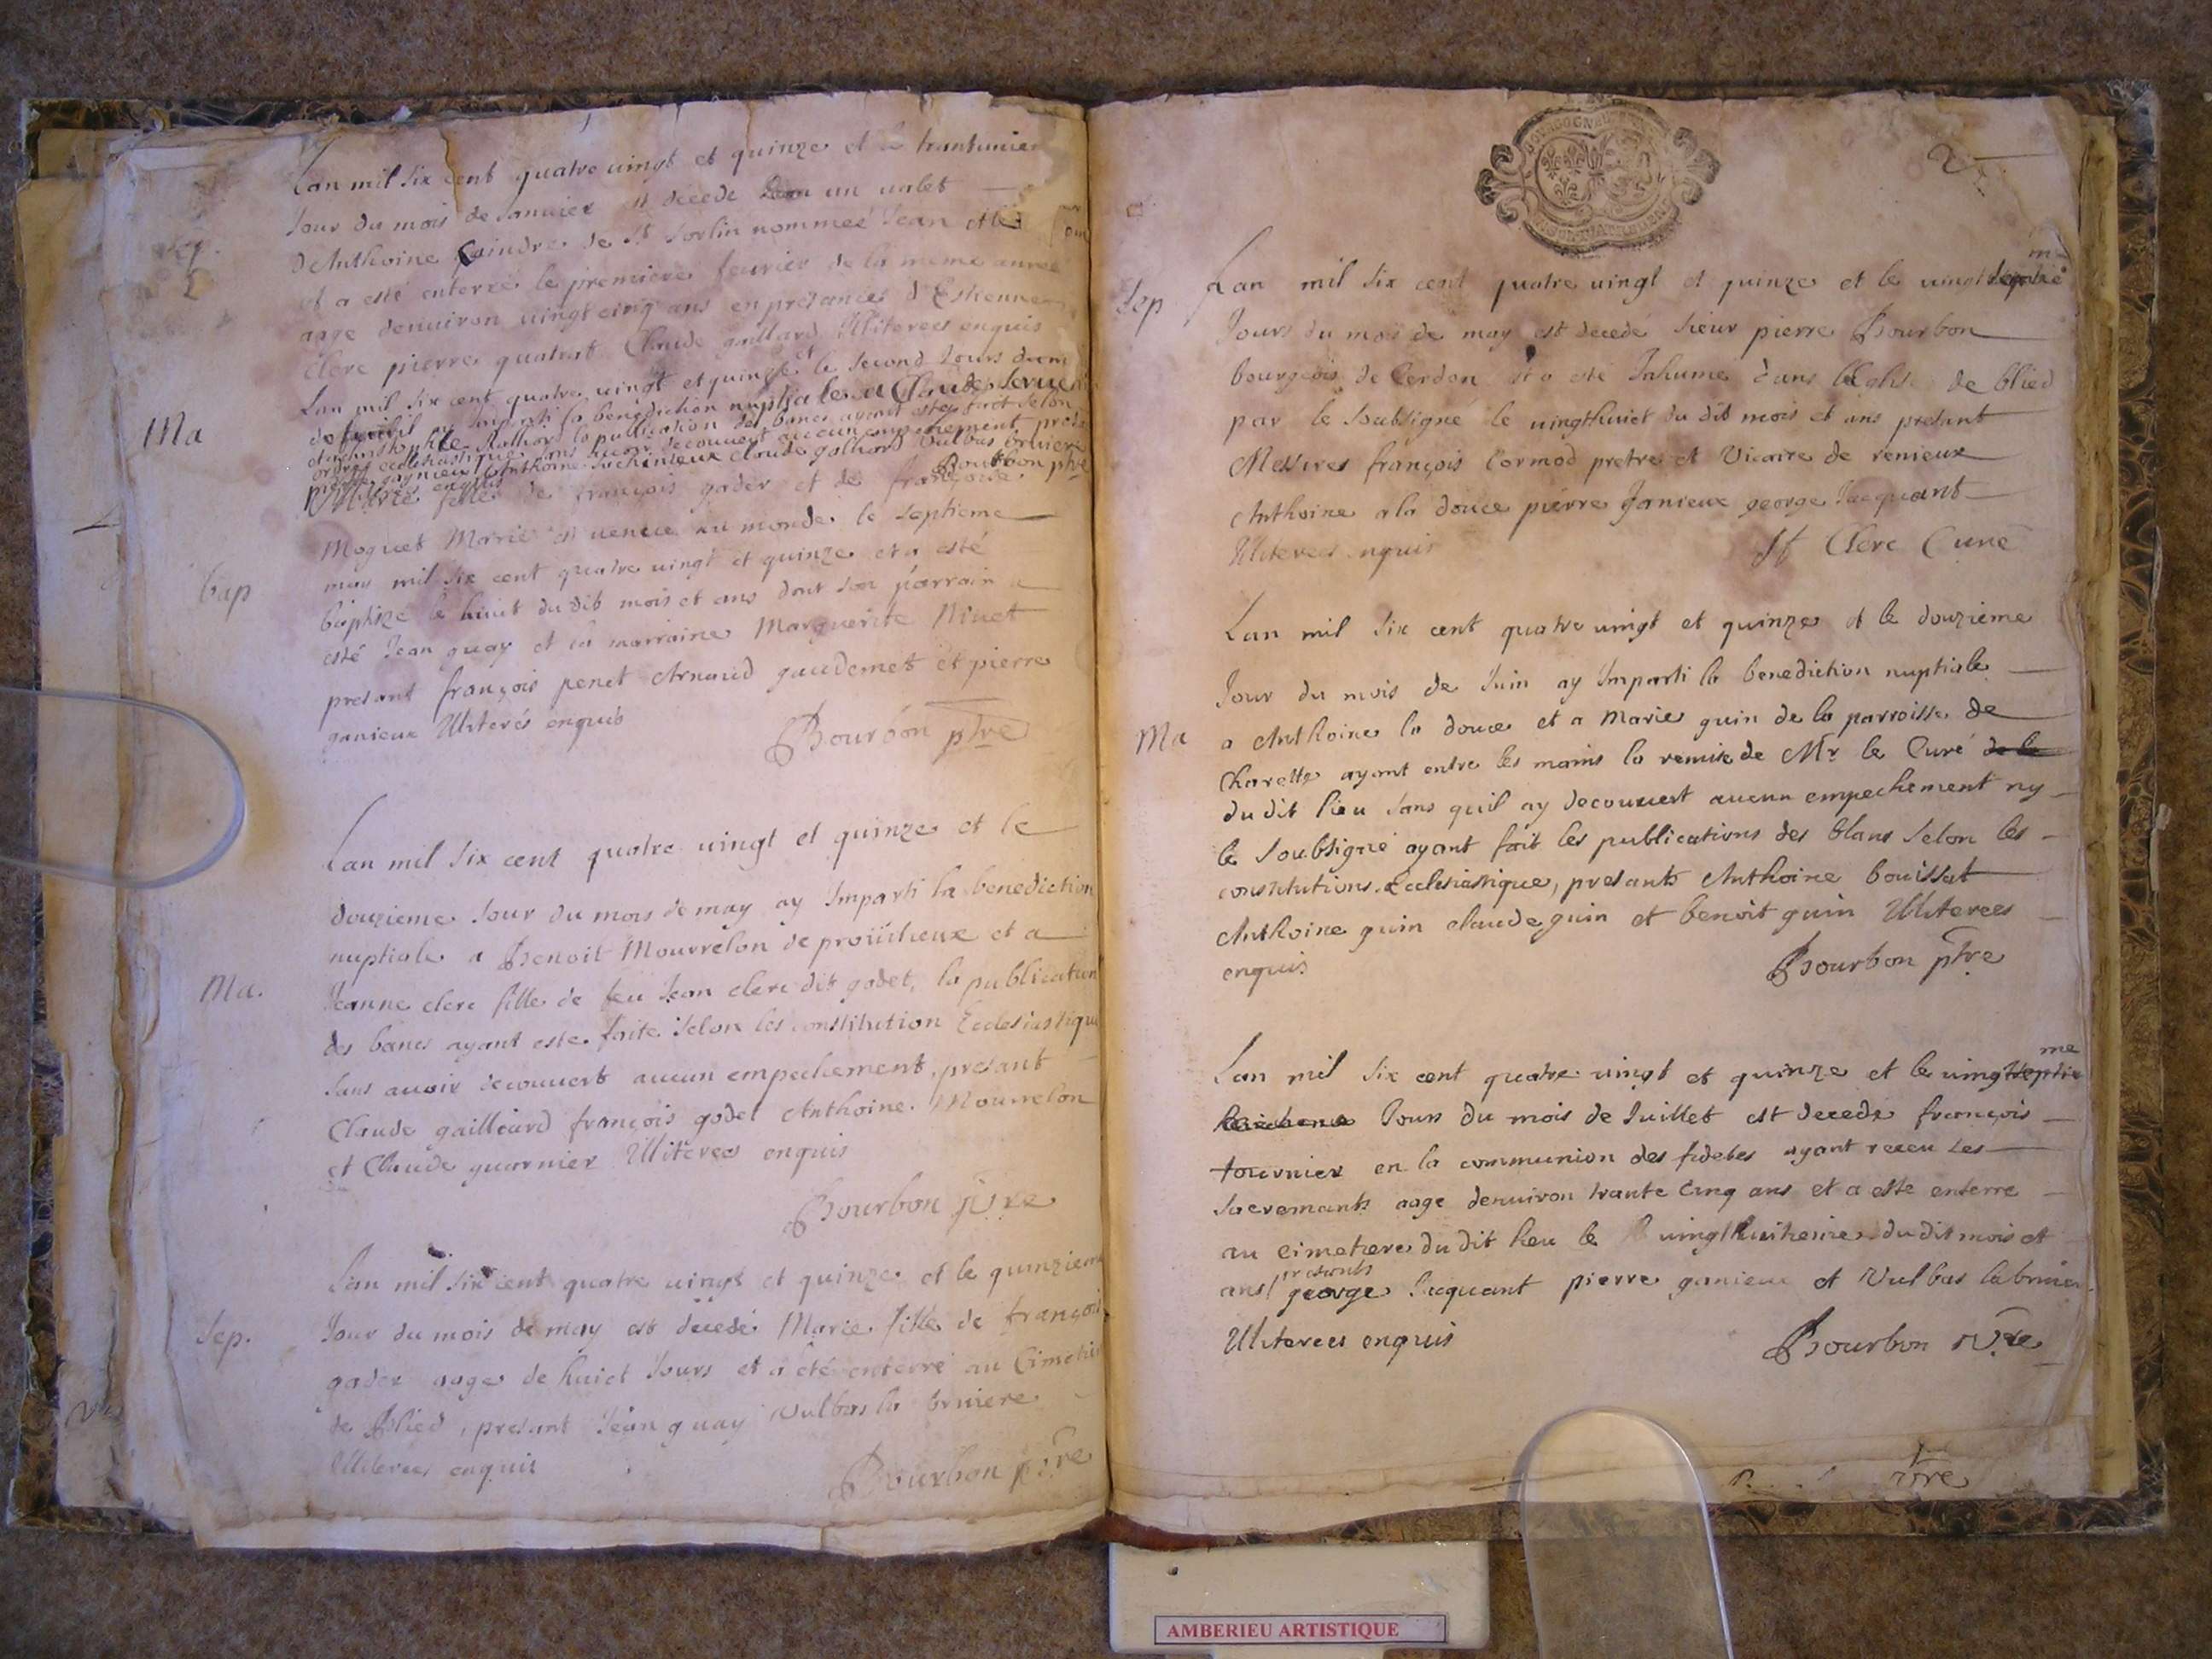 Lan mil six cent quatre uingt et quinze et le
Jour du mois de Januier est decede un ualet
dAnthoine de St Sorlin nommeé Jean
et a esté enterré le premiere feurier de la meme année
aage denuiron uingt cinq ans en presance d'Estienne
Clerc pierre quatrat Claude gaillard Illiterees enquis
Lan mil six cent quatre uingt et quinze et le second Jours du
ay Imparti la benediction nuptiale a Claude
la publication des bancs ayant estes fait selon
ecclesiastique sans auoir decouuert aucun empechement
Anthoine claude galliard Vulbas bruiere
Illiterees enquis
Bourbon ptre
Ma
Marie fille de françois gader et de françoise
Moquet Marie est uenue au monde le septieme
may mil six cent quatre uingt et quinze et a esté
bap
baptize le huit du dit mois et ans dont son parrain a
esté Jean guay et la marraine Marguerite Niuet
presant françois penet Arnaud gaudemet et pierre
ganieux Illiterés enquis
Bourbon ptre
Lan mil six cent quatre uingt et quinze et le
douzieme Jour du mois de may ay Imparti la benediction
nuptiale a Benoit Mourrelon de et a
Ma.
Jeanne clerc fille de feu Jean clerc dit godet, la publication
des bancs ayant este faite selon les constitution Ecclesiastique
sans auoir decouuert aucun empechement, presant
Claude gailliard françois godet Anthoine Mourrelon
et Claude guarnier Illiterees enquis
Bourbon ptre
Lan mil six cent quatre uingt et quinze et le quinzieme
Sep.
Jour du mois de may est decedé Marie fille de françois
gader aage de huict Jours et a été enterré au Cimetiere
de Blied, presant Jean guay Vulbas la bruiere
Illiterees enquis
Bourbon ptre
2
Lan mil six cent quatre uingt et quinze et le uingt
Sep
Jours du mois de may est decedé sieur pierre Bourbon
bourgeois de Cerdon et a esté Inhumé dans leglise de blied
par le soubsigné le uingthuict du dit mois et ans presant
Messires françois Cormod pretre et Vicaire de renieux
Anthoine a la douce pierre Janieux george Jacquant
Illiterees enquis
St Clerc Curé
Lan mil six cent quatre uingt et quinze et le douzieme
Jour du mois de Juin ay Imparti la benediction nuptiale
Ma
a Anthoine la douce et a Marie guin de la parroisse de
Charette ayant entre les mains la remise de Mr le Curé de la
du dit lieu sans quil ay decouuert aucun empechement ny
le soubsigné ayant fait les publications des blans selon les
constitutions Ecclesiastique, presants Anthoine bouissat
Anthoine guin claude guin et benoit guin Illiterees
enquis
Bourbon ptre
Lan mil six cent quatre uingt et quinze et le uingtseptieme
Jours du mois de Juillet est decede françois
tournier en la communion des fideles ayant receu les
sacremants aage denuiron trante cinq ans et a esté enterré
au cimetiere du dit lieu le uingthuitieme du dit mois et
ans presants george Jacquant pierre ganieux et Vulbas labruiere
Illiterees enquis
Bourbon ptre
ptre
AMBERIEU ARTISTIQUE